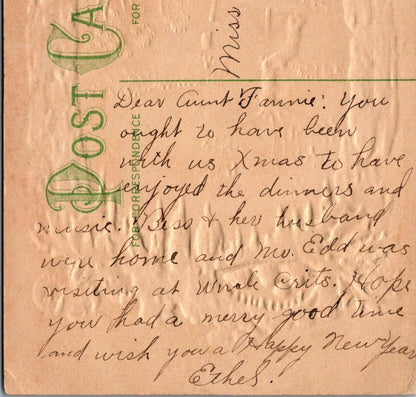 POST CA
FOR
FOR CORRESPONDENCE
Miss
Dear Aunt Fannie: You
ought to have been
with us Xmas to have
enjoyed the dinners and
music. Bess & her husband
were home and Mr. Edd was
visiting at Uncle Crits. Hope
you had a merry good time
and wish you a Happy New Year
Ethel.